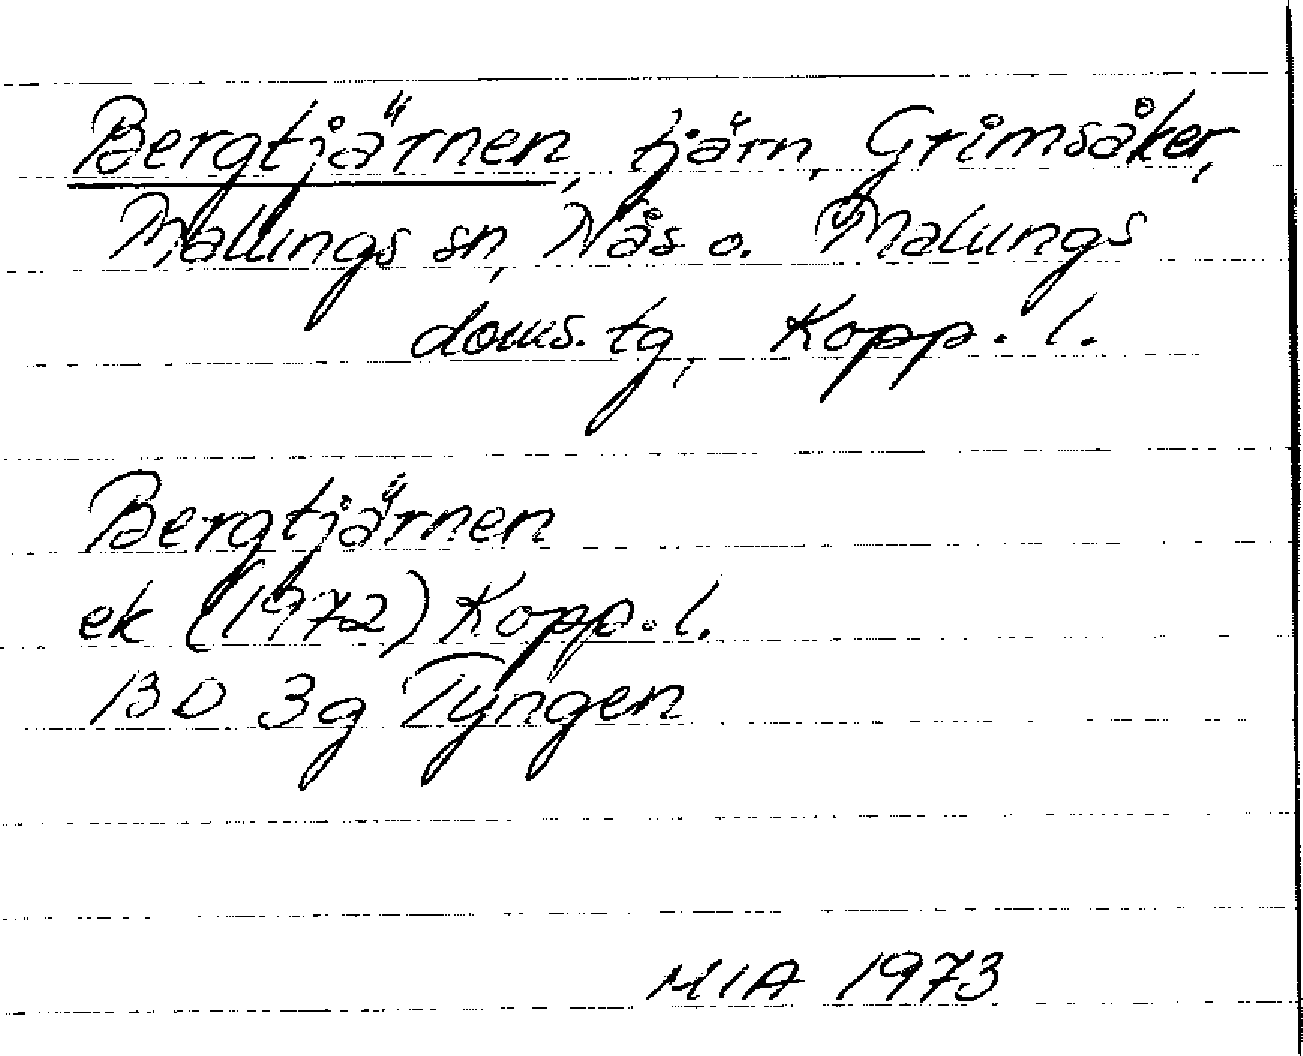 Bergtjärnen, tjärn, Grimsåker,
Malungs sn, Nås o. Malungs
doms. tg, Kopp. l.
Bergtjärnen
ek (1972) Kopp. l.
13 D 3g Tyngen
MIA 1973